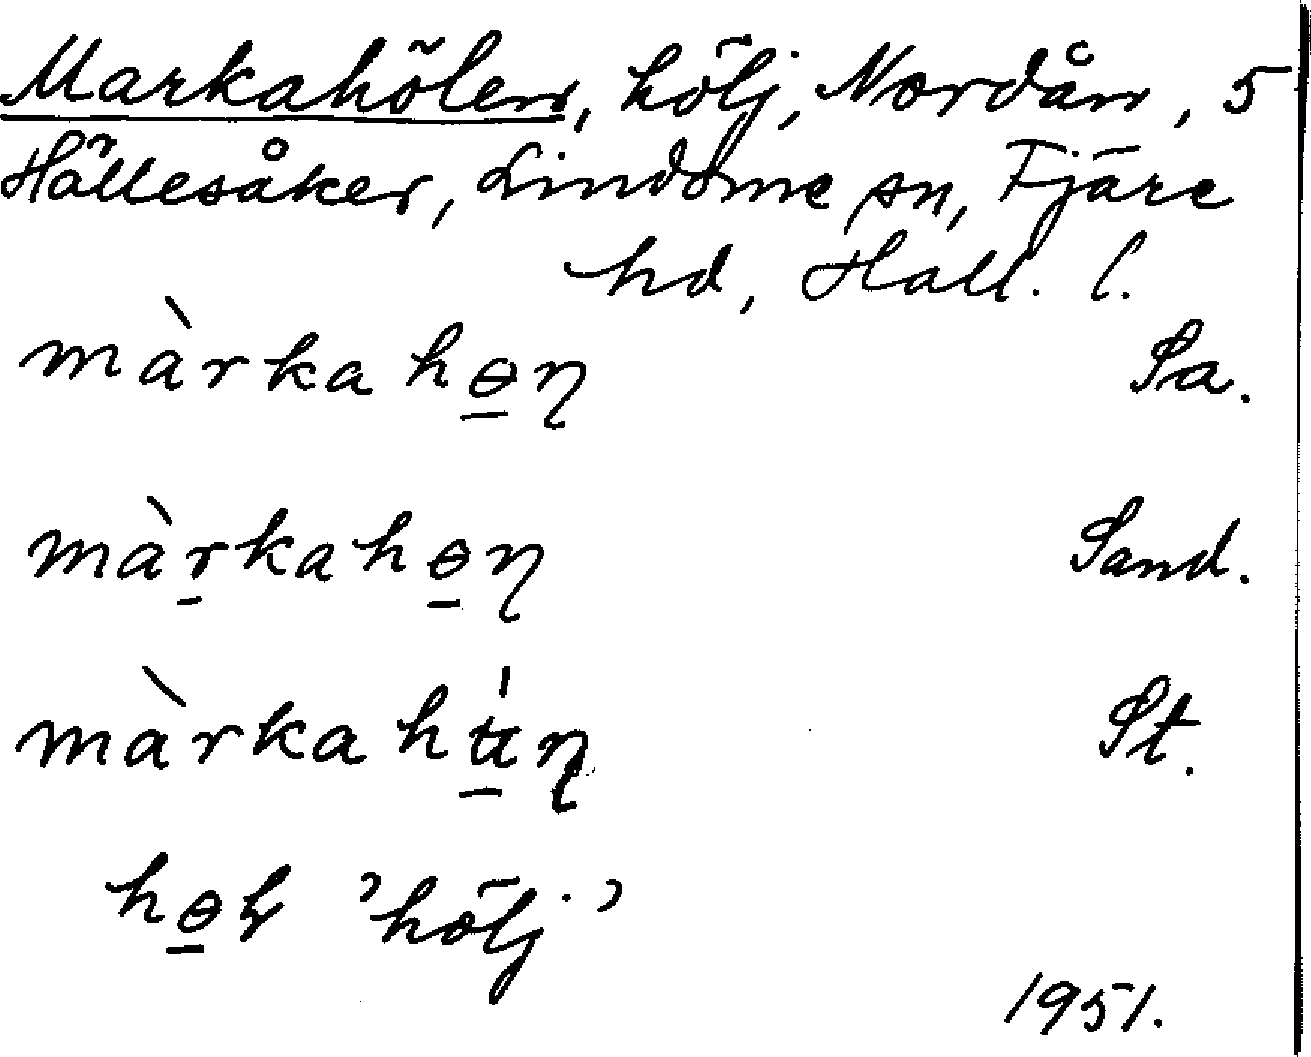 Markahölen, hölj, Nordån, 5
Hällesåker, Lindome sn, Fjäre
hd, Hall. l.
màrkahɵ̱ɳ Sa.
màṟkahɵ̱ɳ Sand.
màrkahʉ̱́ɳ St.
hɵ̱ɫ 'hölj'
1951.